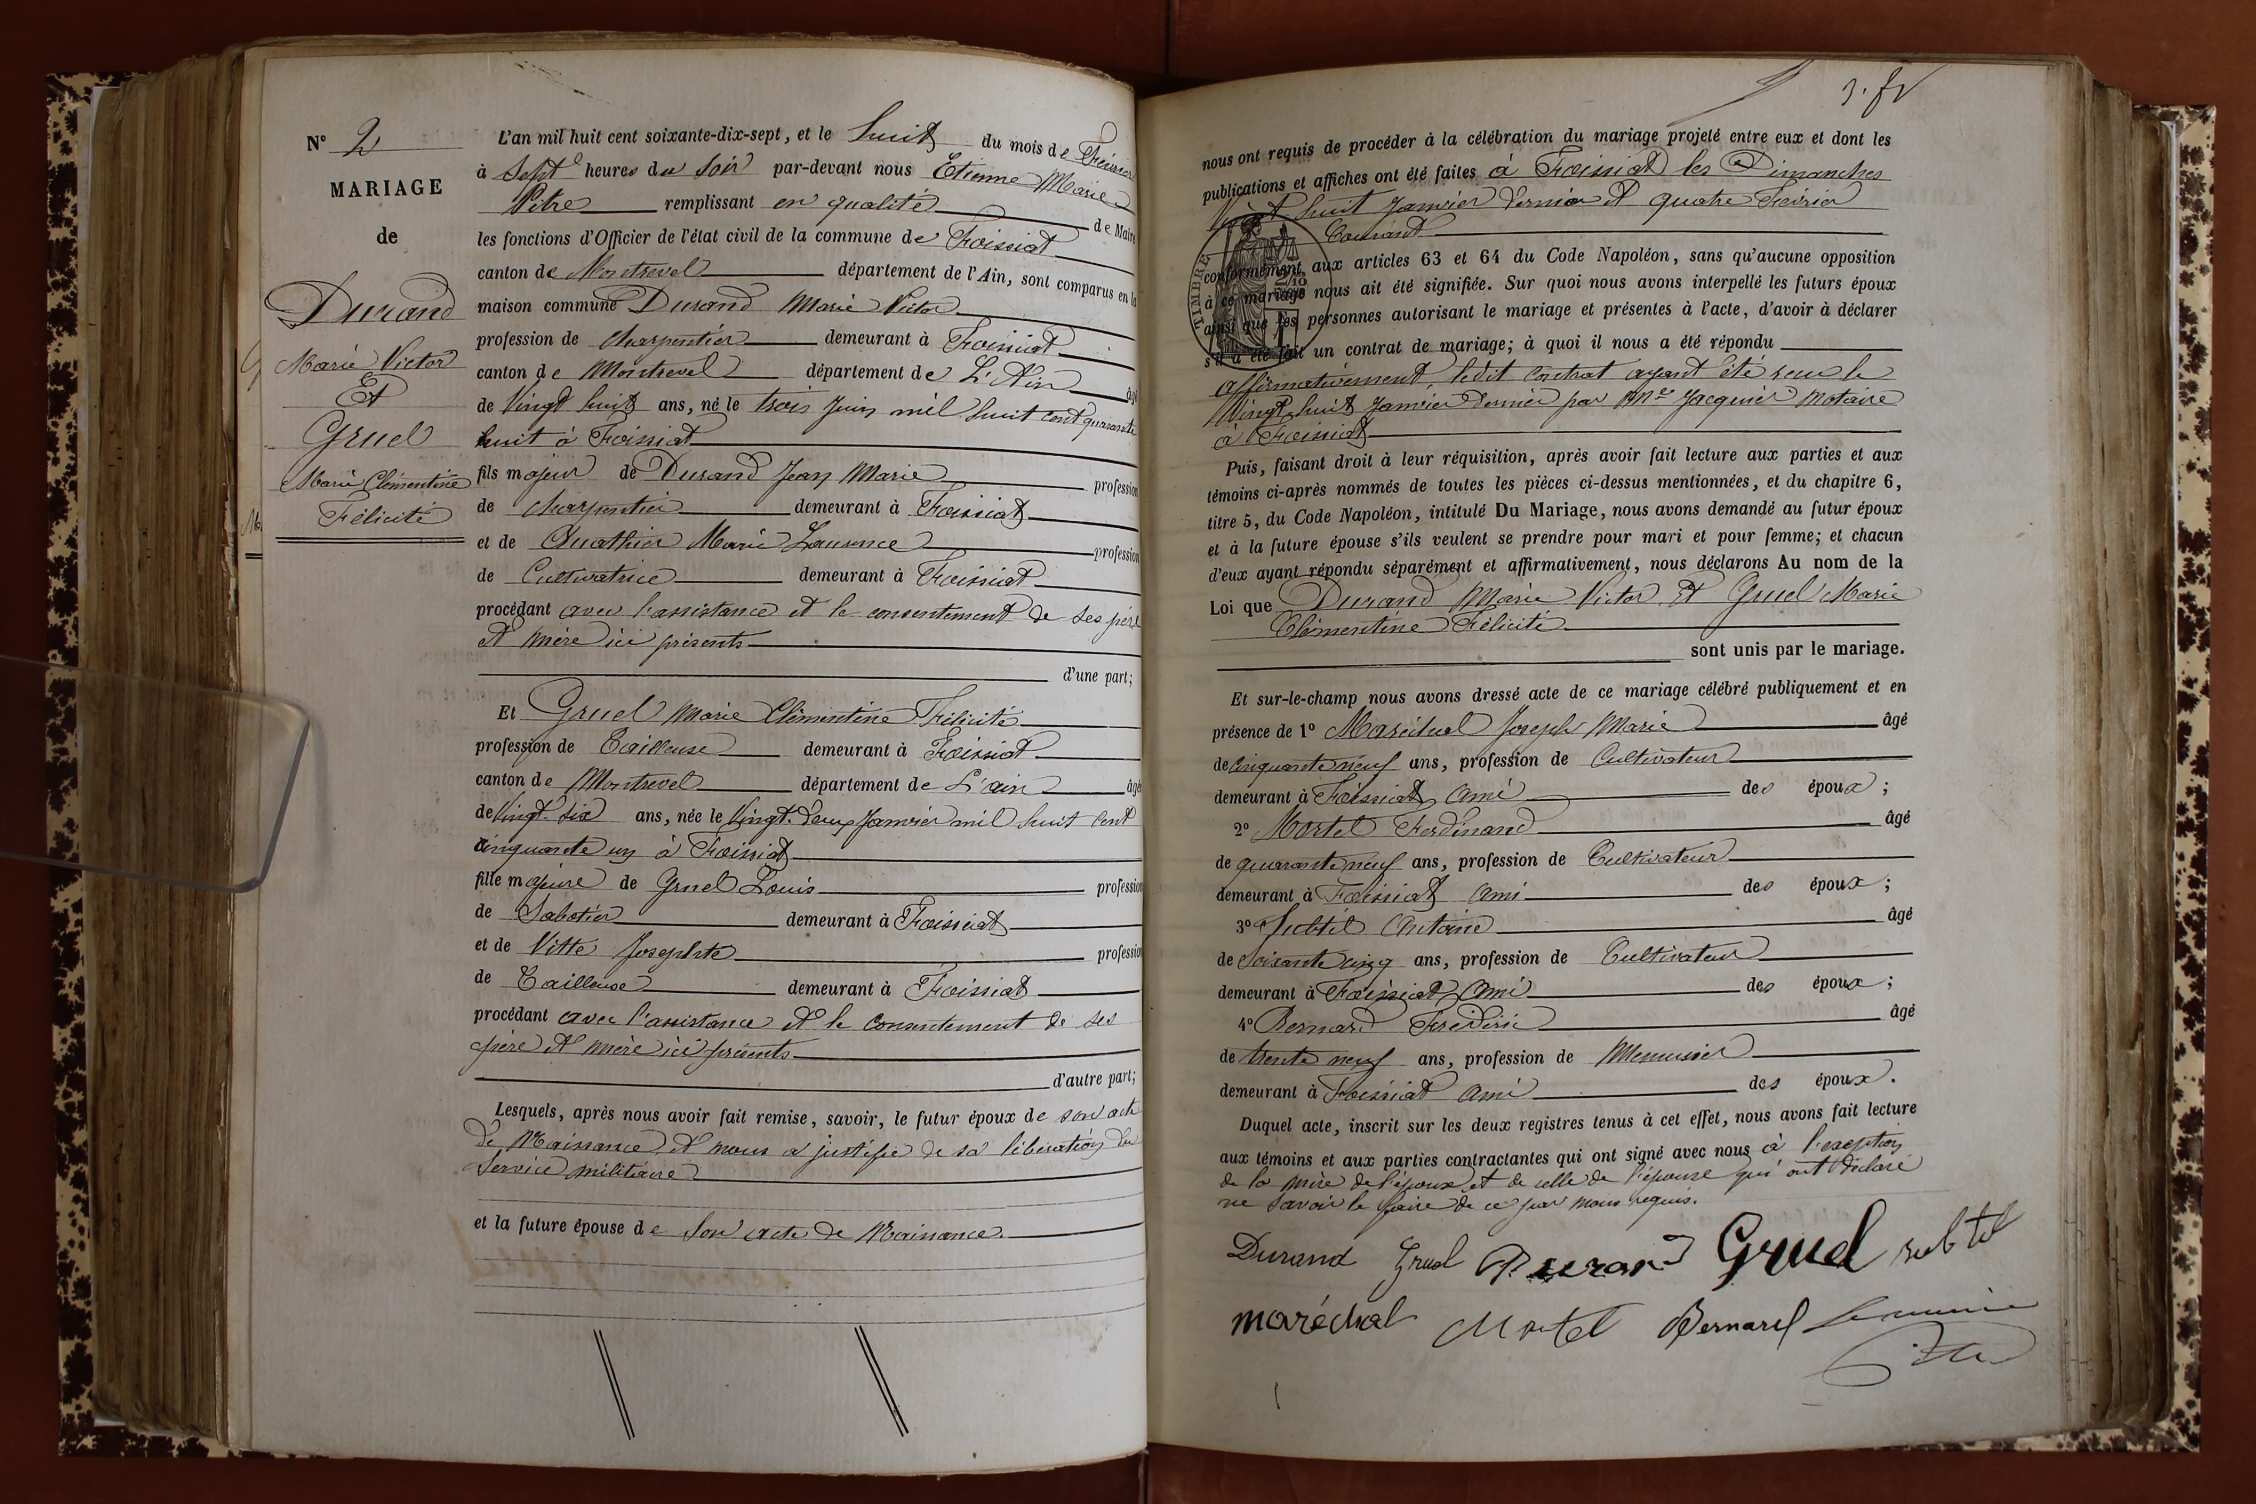 N° 2
MARIAGE
de
Durand
Marie Victor
Et
Gruel
Marie Clémentine
Félicité
L'an mil huit cent soixante-dix-sept, et le huit du mois de Février
à Sept heures du soir par-devant nous Etienne Marie
Pitre remplissant en qualité de Maire
les fonctions d'Officier de l'état civil de la commune de Foissiat
canton de Montrevel département de l'Ain, sont comparus en la
maison commune Durand Marie Victor
profession de charpentier demeurant à Foissiat
canton de Montrevel département de L'Ain âgé
de Vingt huit ans, né le trois Juin mil huit cent quarante
huit à Foissiat
fils majeur de Durand Jean Marie profession
de charpentier demeurant à Foissiat
et de Marie Laurence profession
de Cultivatrice demeurant à Foissiat
procédant avec l'assistance et le consentement de ses père
et mère ici présents
d'une part;
Et Gruel Marie Clémentine Félicité
profession de Tailleuse demeurant à Foissiat
canton de Montrevel département de L'ain âgée
de Vingt-six ans, née le Vingt-deux Janvier mil huit cent
cinquante un à Foissiat
fille majeure de Gruel Louis profession
de Sabotier demeurant à Foissiat
et de Vitte Josephte profession
de Tailleuse demeurant à Foissiat
procédant avec l'assistance et le consentement de ses
père et mère ici présents
d'autre part;
Lesquels, après nous avoir fait remise, savoir, le futur époux de son acte
de Naissance et nous a justifié de sa libération du
Service militaire
et la future épouse de son acte de Naissance.
3.
nous ont requis de procéder à la célébration du mariage projeté entre eux et dont les
publications et affiches ont été faites à Foissiat les Dimanches
Vingt huit Janvier dernier et quatre Février
Courant
TIMBRE
conformément aux articles 63 et 64 du Code Napoléon, sans qu'aucune opposition
à ce mariage nous ait été signifiée. Sur quoi nous avons interpellé les futurs époux
ainsi que les personnes autorisant le mariage et présentes à l'acte, d'avoir à déclarer
s'il a été fait un contrat de mariage; à quoi il nous a été répondu
affirmativement, ledit contrat ayant été reçu le
Vingt huit Janvier dernier par Me Jacquier Notaire
à Foissiat
Puis, faisant droit à leur réquisition, après avoir fait lecture aux parties et aux
témoins ci-après nommés de toutes les pièces ci-dessus mentionnées, et du chapitre 6,
titre 5, du Code Napoléon, intitulé Du Mariage, nous avons demandé au futur époux
et à la future épouse s'ils veulent se prendre pour mari et pour femme; et chacun
d'eux ayant répondu séparément et affirmativement, nous déclarons Au nom de la
Loi que Durand Marie Victor et Gruel Marie
Clémentine Félicité
sont unis par le mariage.
Et sur-le-champ nous avons dressé acte de ce mariage célébré publiquement et en
présence de 1° Maréchal Joseph Marie âgé
de cinquante neuf ans, profession de Cultivateur
demeurant à Foissiat ami des époux;
2° Mortel Ferdinand âgé
de quarante neuf ans, profession de Cultivateur
demeurant à Foissiat ami des époux;
3° Subtil Antoine âgé
de soixante cinq ans, profession de Cultivateur
demeurant à Foissiat ami des époux;
4° Bernard Fréderic âgé
de trente neuf ans, profession de Menuisier
demeurant à Foissiat ami des époux.
Duquel acte, inscrit sur les deux registres tenus à cet effet, nous avons fait lecture
aux témoins et aux parties contractantes qui ont signé avec nous à l'exception
de la mère de l'époux et de celle de l'épouse qui ont déclaré
ne savoir le faire de ce par nous requis.
Durand Gruel Durand Gruel subtil
maréchal Mortel Bernard Le maire
Pitre